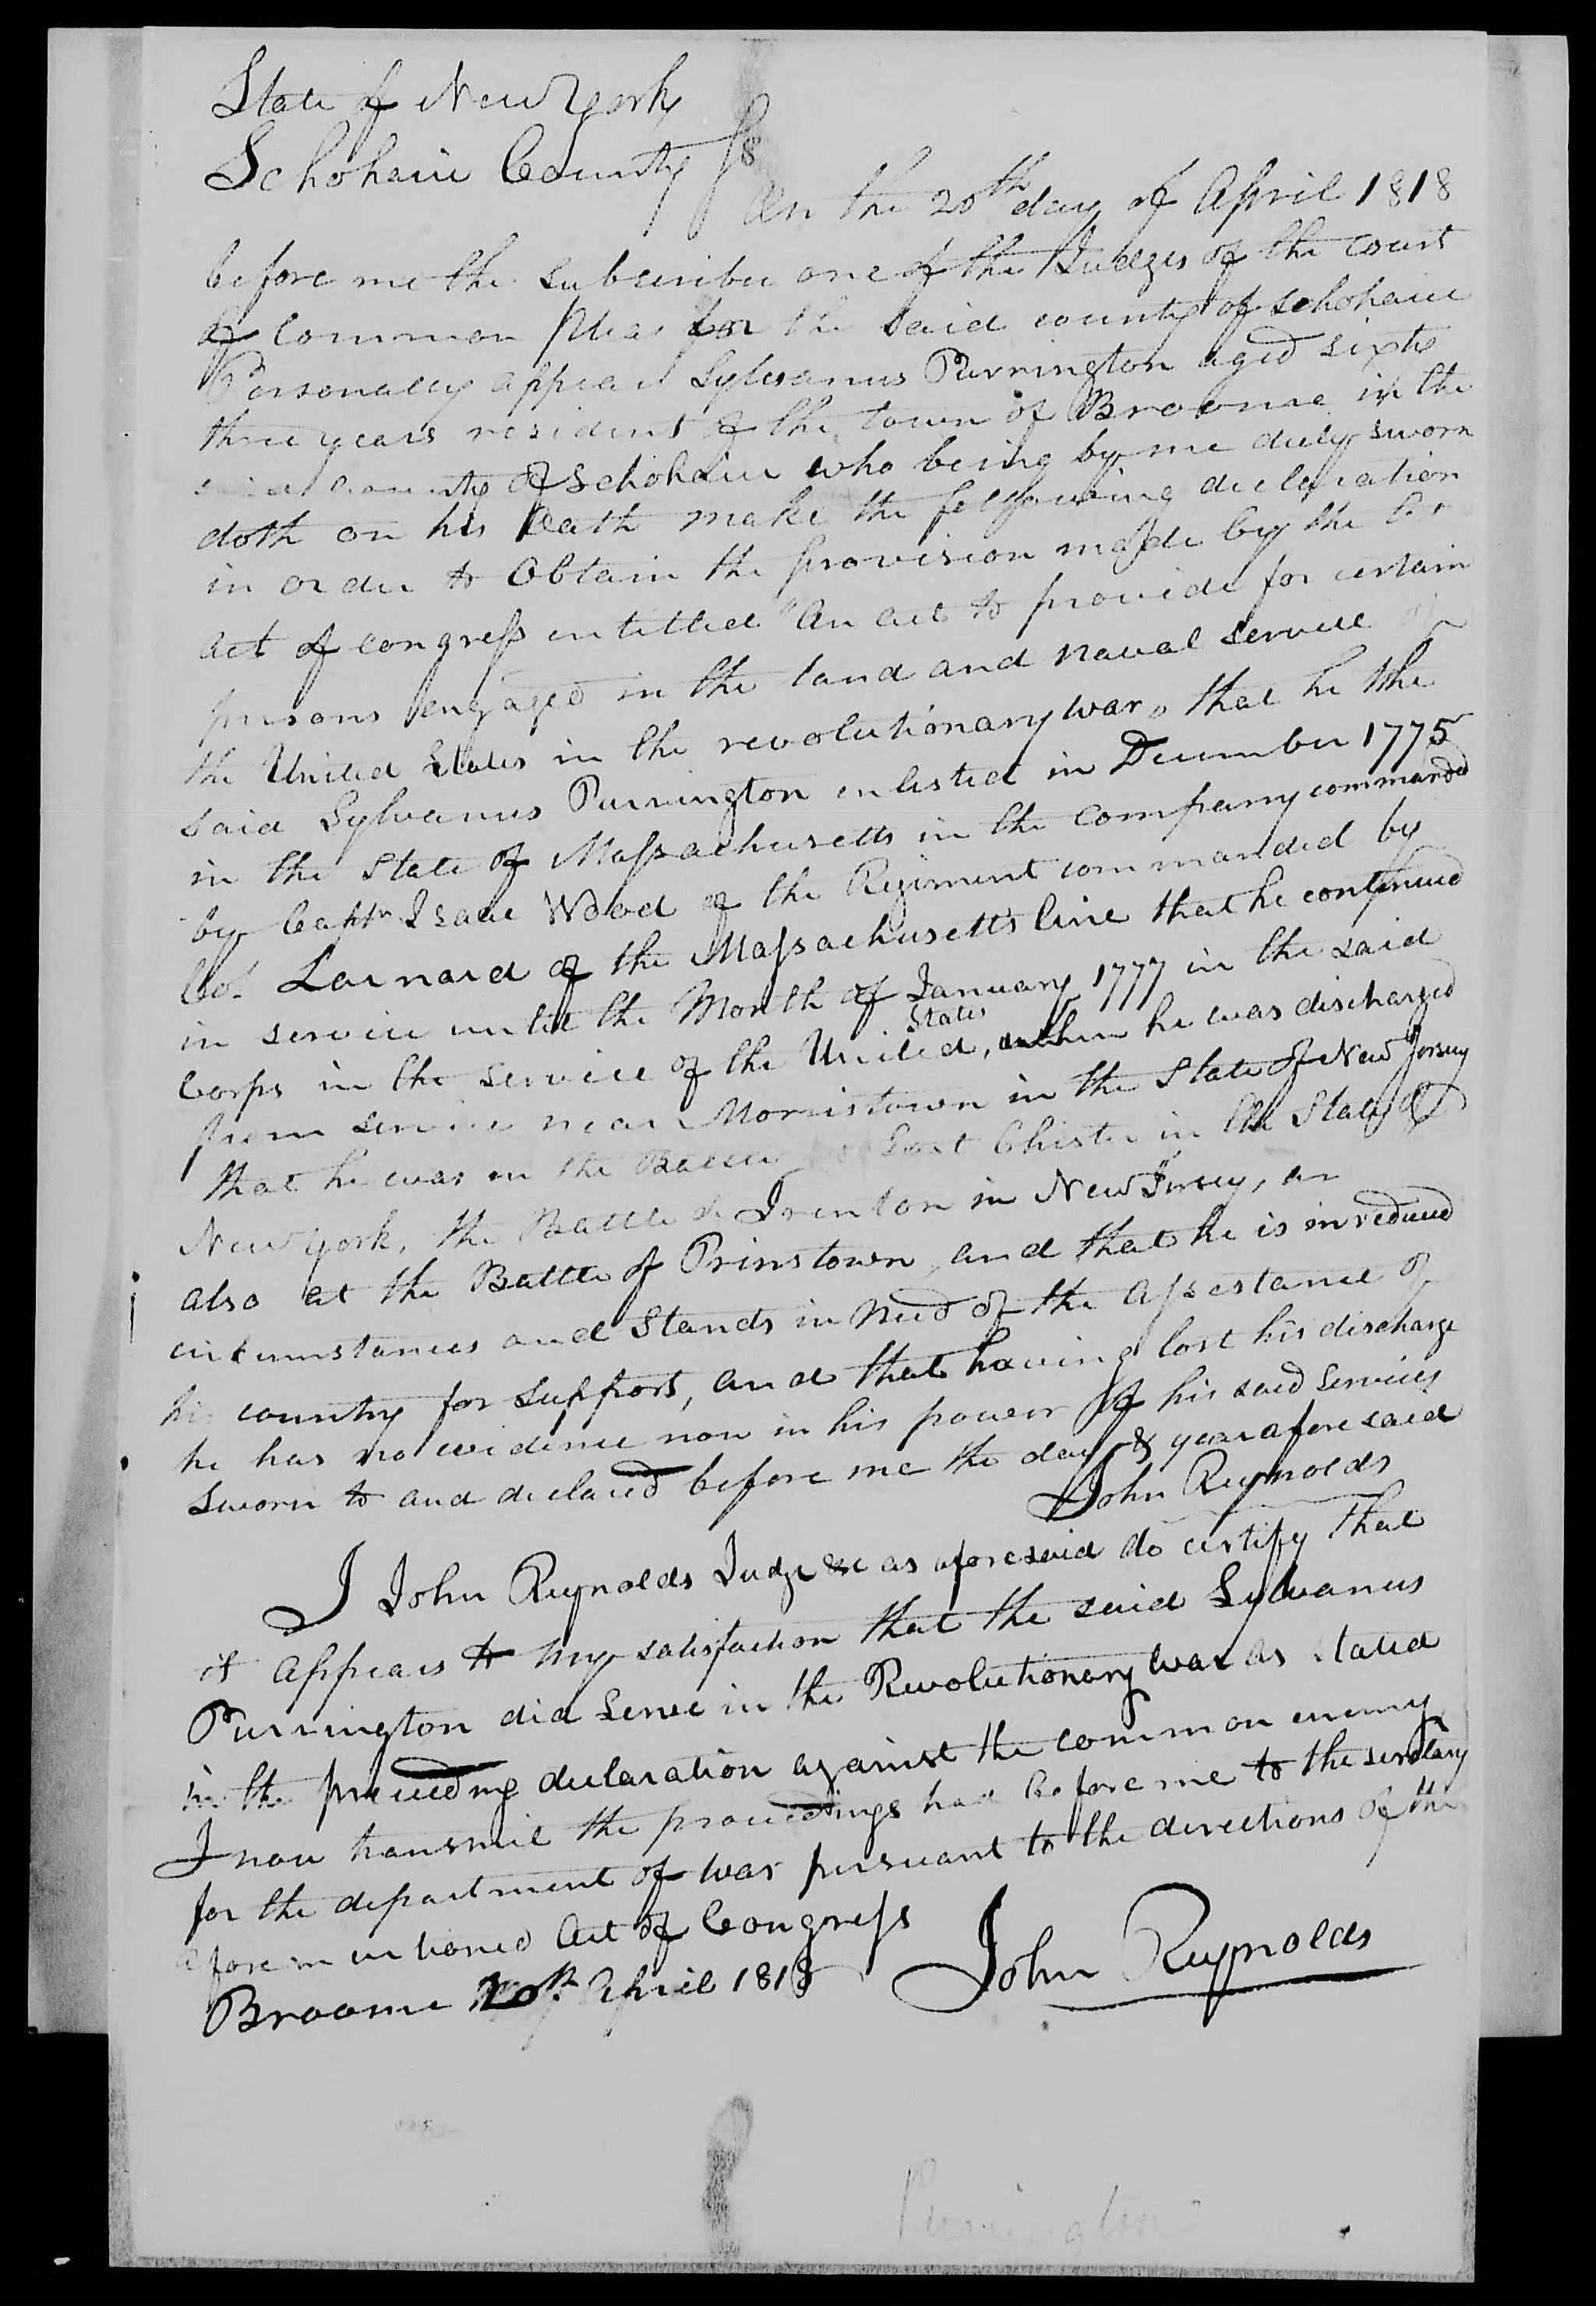 State of New York
Schoharie County ss
On the 20th day of April 1818
before me the Subscriber one of the Judges of the court
of Common Pleas for the said county of Schoharie
Personally appeard Sylvanus Purrington aged sixty
three years resident of the town of Broome in the
said County of Schoharie who being by me duly sworn
doth on his Oath make the following declaration
in order to Obtain the provision made by the
act of congress intitled "An act to provide for certain
persons engaged in the land and naval service of
the United States in the revolutionary war, that he the
said Sylvanus Purrington enlisted in December 1775
in the State of Massachusetts in the Company commanded
by Captn Isaac Wood of the Regiment commanded by
Col. Larnard of the Massachusetts line that he continued
in service until the Month of January 1777 in the said
Corps in the service of the United States, when he was discharged
from service near Morristown in the State of New Jersey
that he was in the Battle East Chister in the State of
New York, the Battle of Trenton in New Jersey, an
also at the Battle of Prinstown, and that he is in reduced
circumstances and Stands in need of the Assistance of
his country for support, and that having lost his discharge
he has no evidence now in his power of his said Services
Sworn to and declared before me the day & year aforesaid
John Reynolds
I John Reynolds Judge &c as aforesaid do certify that
it appears to my satisfaction that the said Sylvanus
Purrington did Serve in the Revolutionary War as stated
in the preceeding declaration against the common enemy
I now transmit the proceedings had before me to the secretary
for the department of war pursuant to the directions of the
aforementioned Act of Congress
Broome 20th April 1818 John Reynolds
Purrington